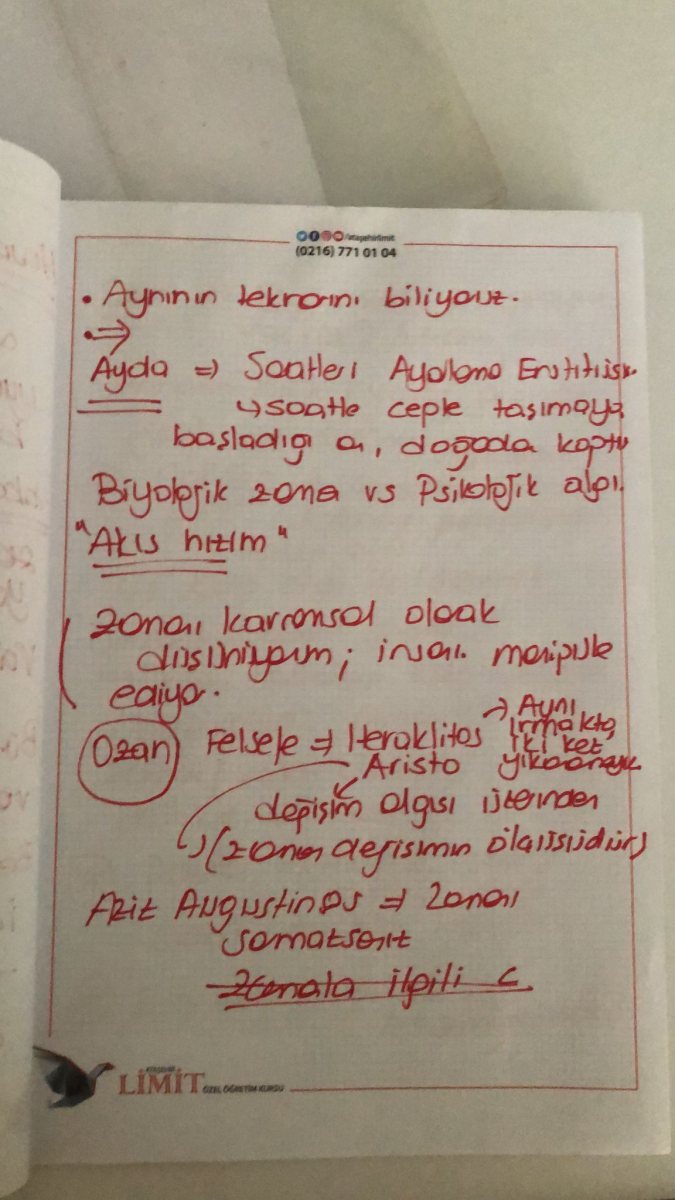 /atasehirlimit
(0216) 771 01 04
• Aynının tekrarını biliyoruz.
• ⇒
Ayda ⇒ Saatleri Ayarlama Enstitüsü
↳ saatle ceple taşımaya
başladığı a, doğada koptu
Biyolojik zona vs Psikolojik algı.
"Akış hızım"
zonaı karronsal olaak
düşünüyorum; insanı manipüle
ediyo.
Ozan Felsefe ⇒ Heraklitos → Aynı
ırmakta
iki kez
Aristo yıkanamayız
değişim olgısı üzerinden
(zonan değişimin ölçüsüdür)
Aziz Augustinos ⇒ Zonaı
somatsant
Zonala ilgili c
ATAŞEHİR
LİMİT ÖZEL ÖĞRETİM KURSU